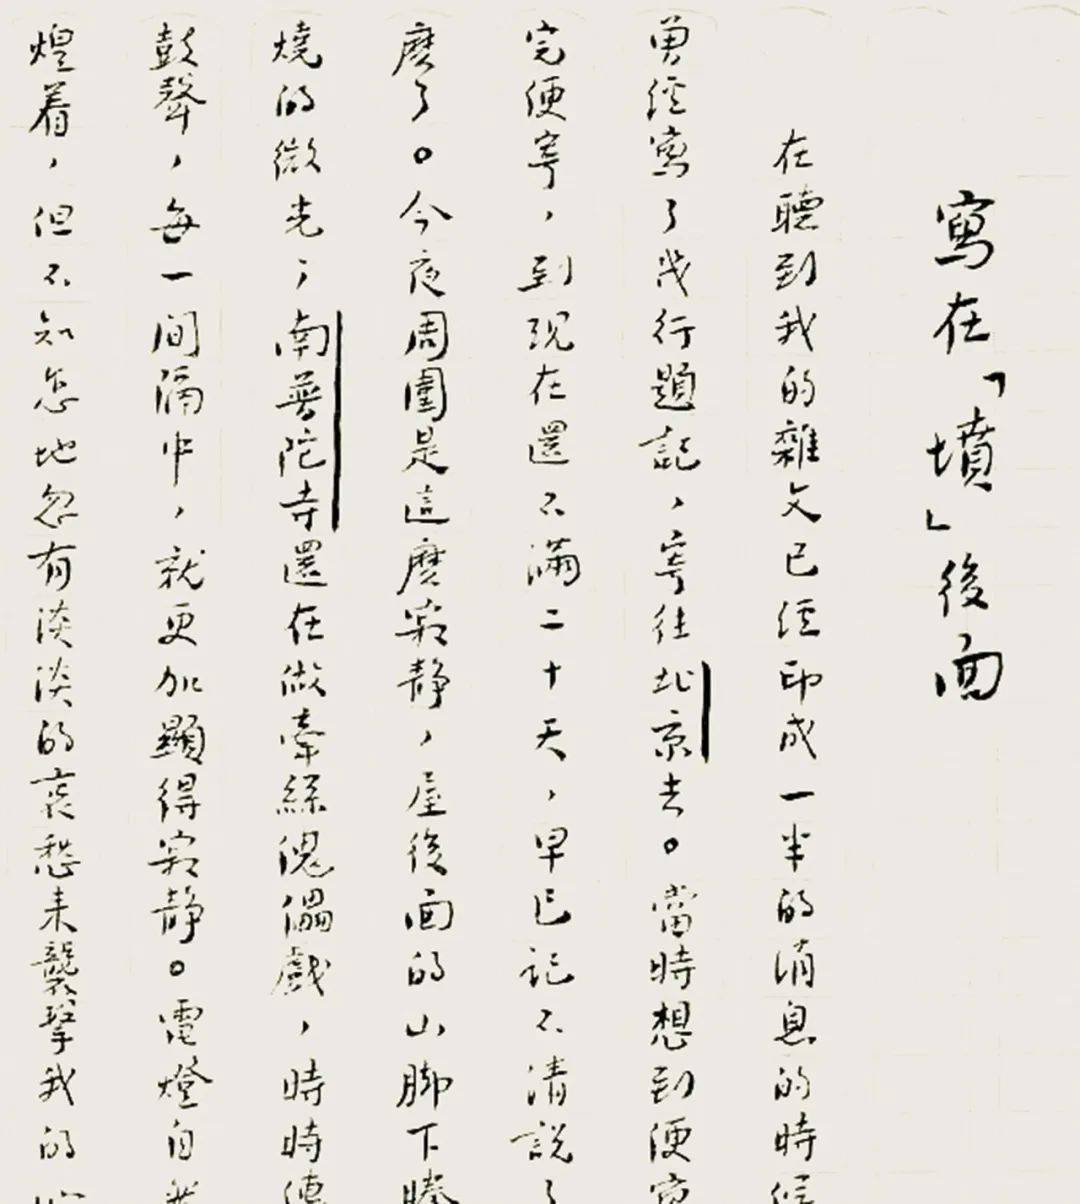 寫在「墳」後面
在聽到我的雜文已經印成一半的消息的時候
曾經寫了幾行題記，寄往北京去。當時想到便寫
完便寄，到現在還不滿二十天，早已記不清說了
麽了。今夜周圍是這麽寂靜，屋後面的山腳下騰
燒的微光；南普陀寺還在做牽絲傀儡戲，時時傳
鼓聲，每一間隔中，就更加顯得寂靜。電燈自然
煌着，但不知怎地忽有淡淡的哀愁來襲擊我的心